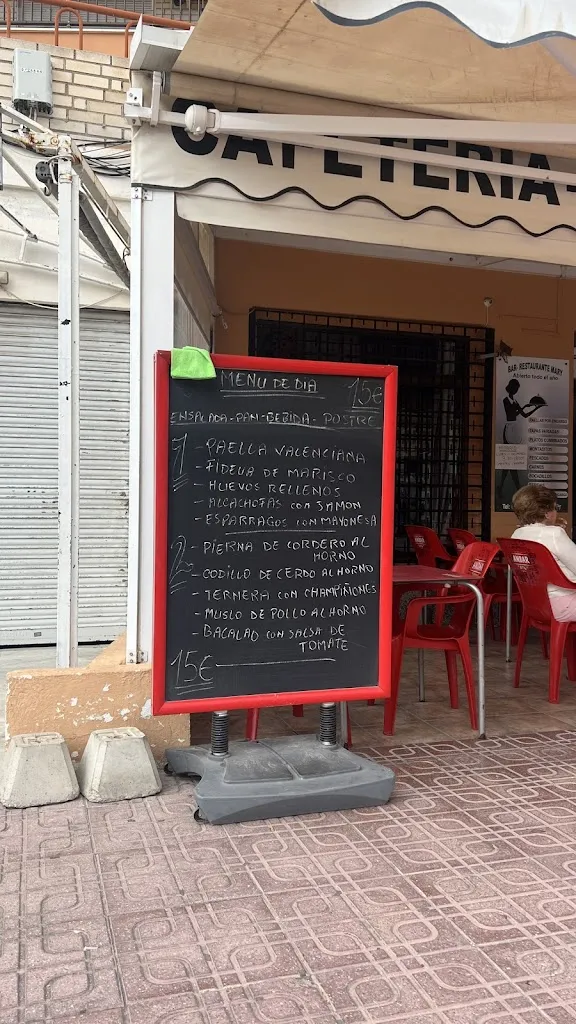 CAFETERIA-
MENU DE DIA 15€
ENSALADA-PAN-BEBIDA-POSTRE
1 - PAELLA VALENCIANA
- FIDEUA DE MARISCO
- HUEVOS RELLENOS
- ALCACHOFAS CON JAMON
- ESPARRAGOS CON MAYONESA
2 - PIERNA DE CORDERO AL
HORNO
- CODILLO DE CERDO AL HORNO
- TERNERA CON CHAMPIÑONES
- MUSLO DE POLLO AL HORNO
- BACALAO CON SALSA DE
TOMATE
15€
BAR-RESTAURANTE MARY
Abierto todo el año
MONTADITOS
PESCADOS
CARNES
BOCADILLOS